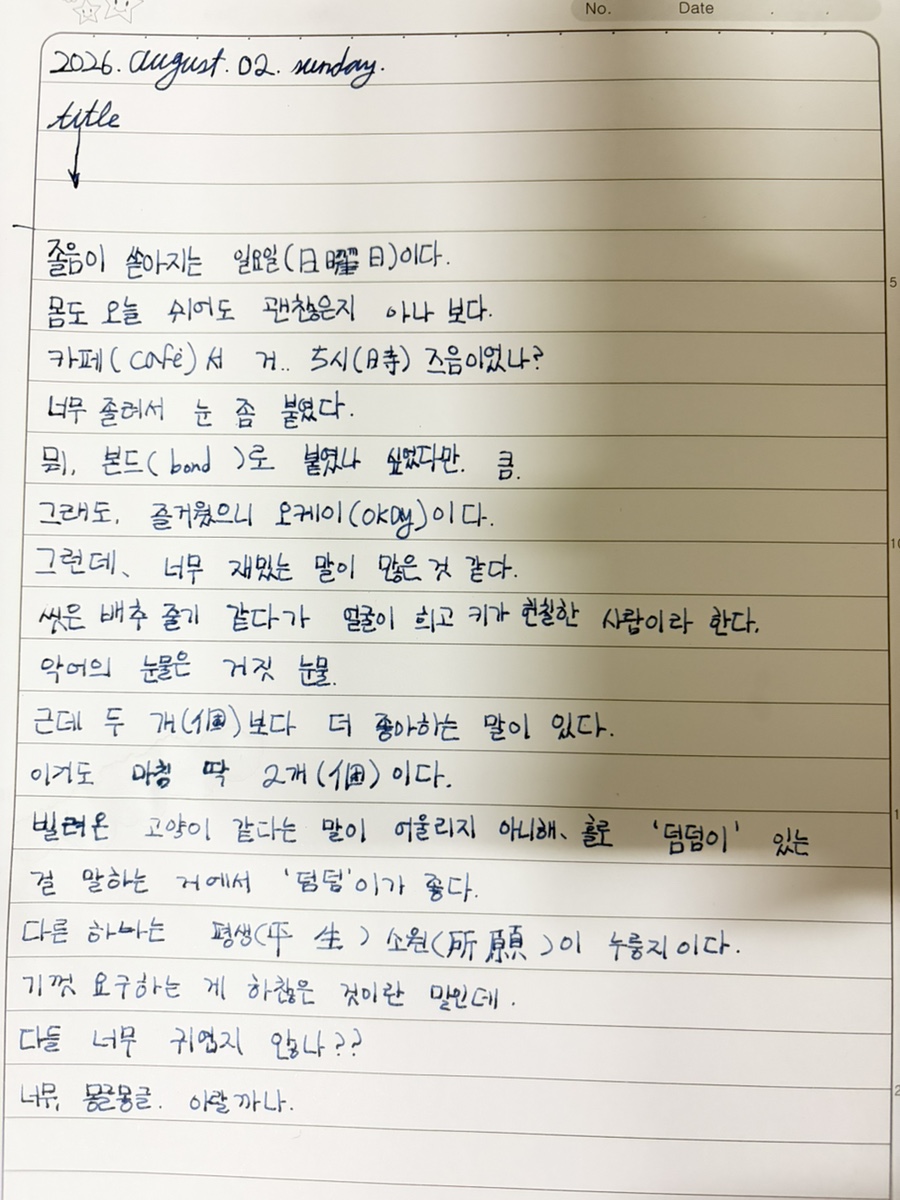 No. Date
2026. august. 02. sunday.
title
졸음이 쏟아지는 일요일(日曜日)이다.
몸도 오늘 쉬어도 괜찮은지 아나 보다.
카페(café)서 거.. 5시(時) 즈음이었나?
너무 졸려서 눈 좀 붙였다.
뭐, 본드(bond)로 붙였나 싶었다만. 큼.
그래도, 즐거웠으니 오케이(okay)이다.
그런데, 너무 재밌는 말이 많은 것 같다.
씻은 배추 줄기 같다가 얼굴이 희고 키가 헌칠한 사람이라 한다.
악어의 눈물은 거짓 눈물.
근데 두 개(個)보다 더 좋아하는 말이 있다.
이것도 마침 딱 2개(個)이다.
빌려온 고양이 같다는 말이 어울리지 아니해, 홀로 '덤덤이' 있는
걸 말하는 거에서 '덤덤'이가 좋다.
다른 하나는 평생(平生) 소원(所願)이 누룽지이다.
기껏 요구하는 게 하찮은 것이란 말인데.
다들 너무 귀엽지 않나??
너무, 몽글몽글. 아랄까나.
5
10
1
2